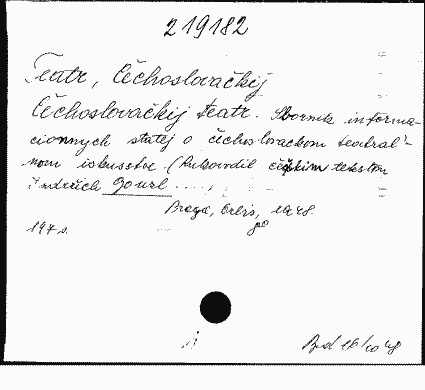 219182
Teatr, Čechoslovačkij
Čechoslovačkij teatr. Sbornik informa-
cionnych statej o čechoslovackom teatral'-
nom iskusstve. (Rukovodil češkim tekstom
Jindřich
Praga, Orbis, 1948.
197 s.